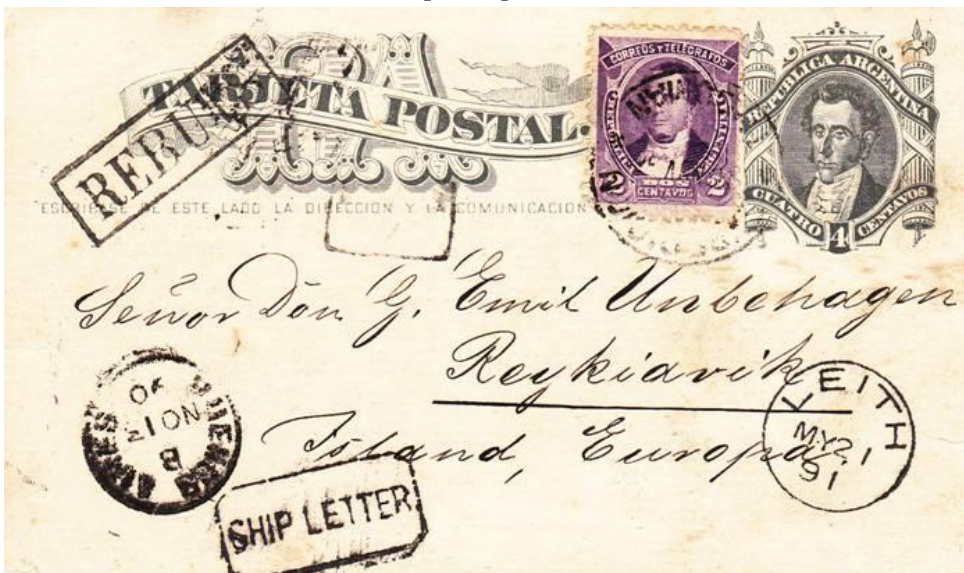 TARJETA POSTAL.
REBUT
ESCRIBASE DE ESTE LADO LA DIRECCION Y LA COMUNICACION
CORREOS Y TELEGRAFOS
2 DOS 2
CENTAVOS
REPUBLICA ARGENTINA
CUATRO 4 CENTAVOS
Señor Dōn G. Emil Unbehagen
Reykiavik
Island, Europa.
BUENOS AIRES
B
NO 13
90
SHIP LETTER
LEITH
MY 21
91